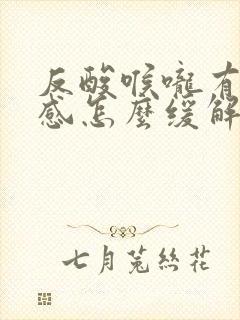 反酸喉嚨有
感怎麼緩解
七月菟絲花